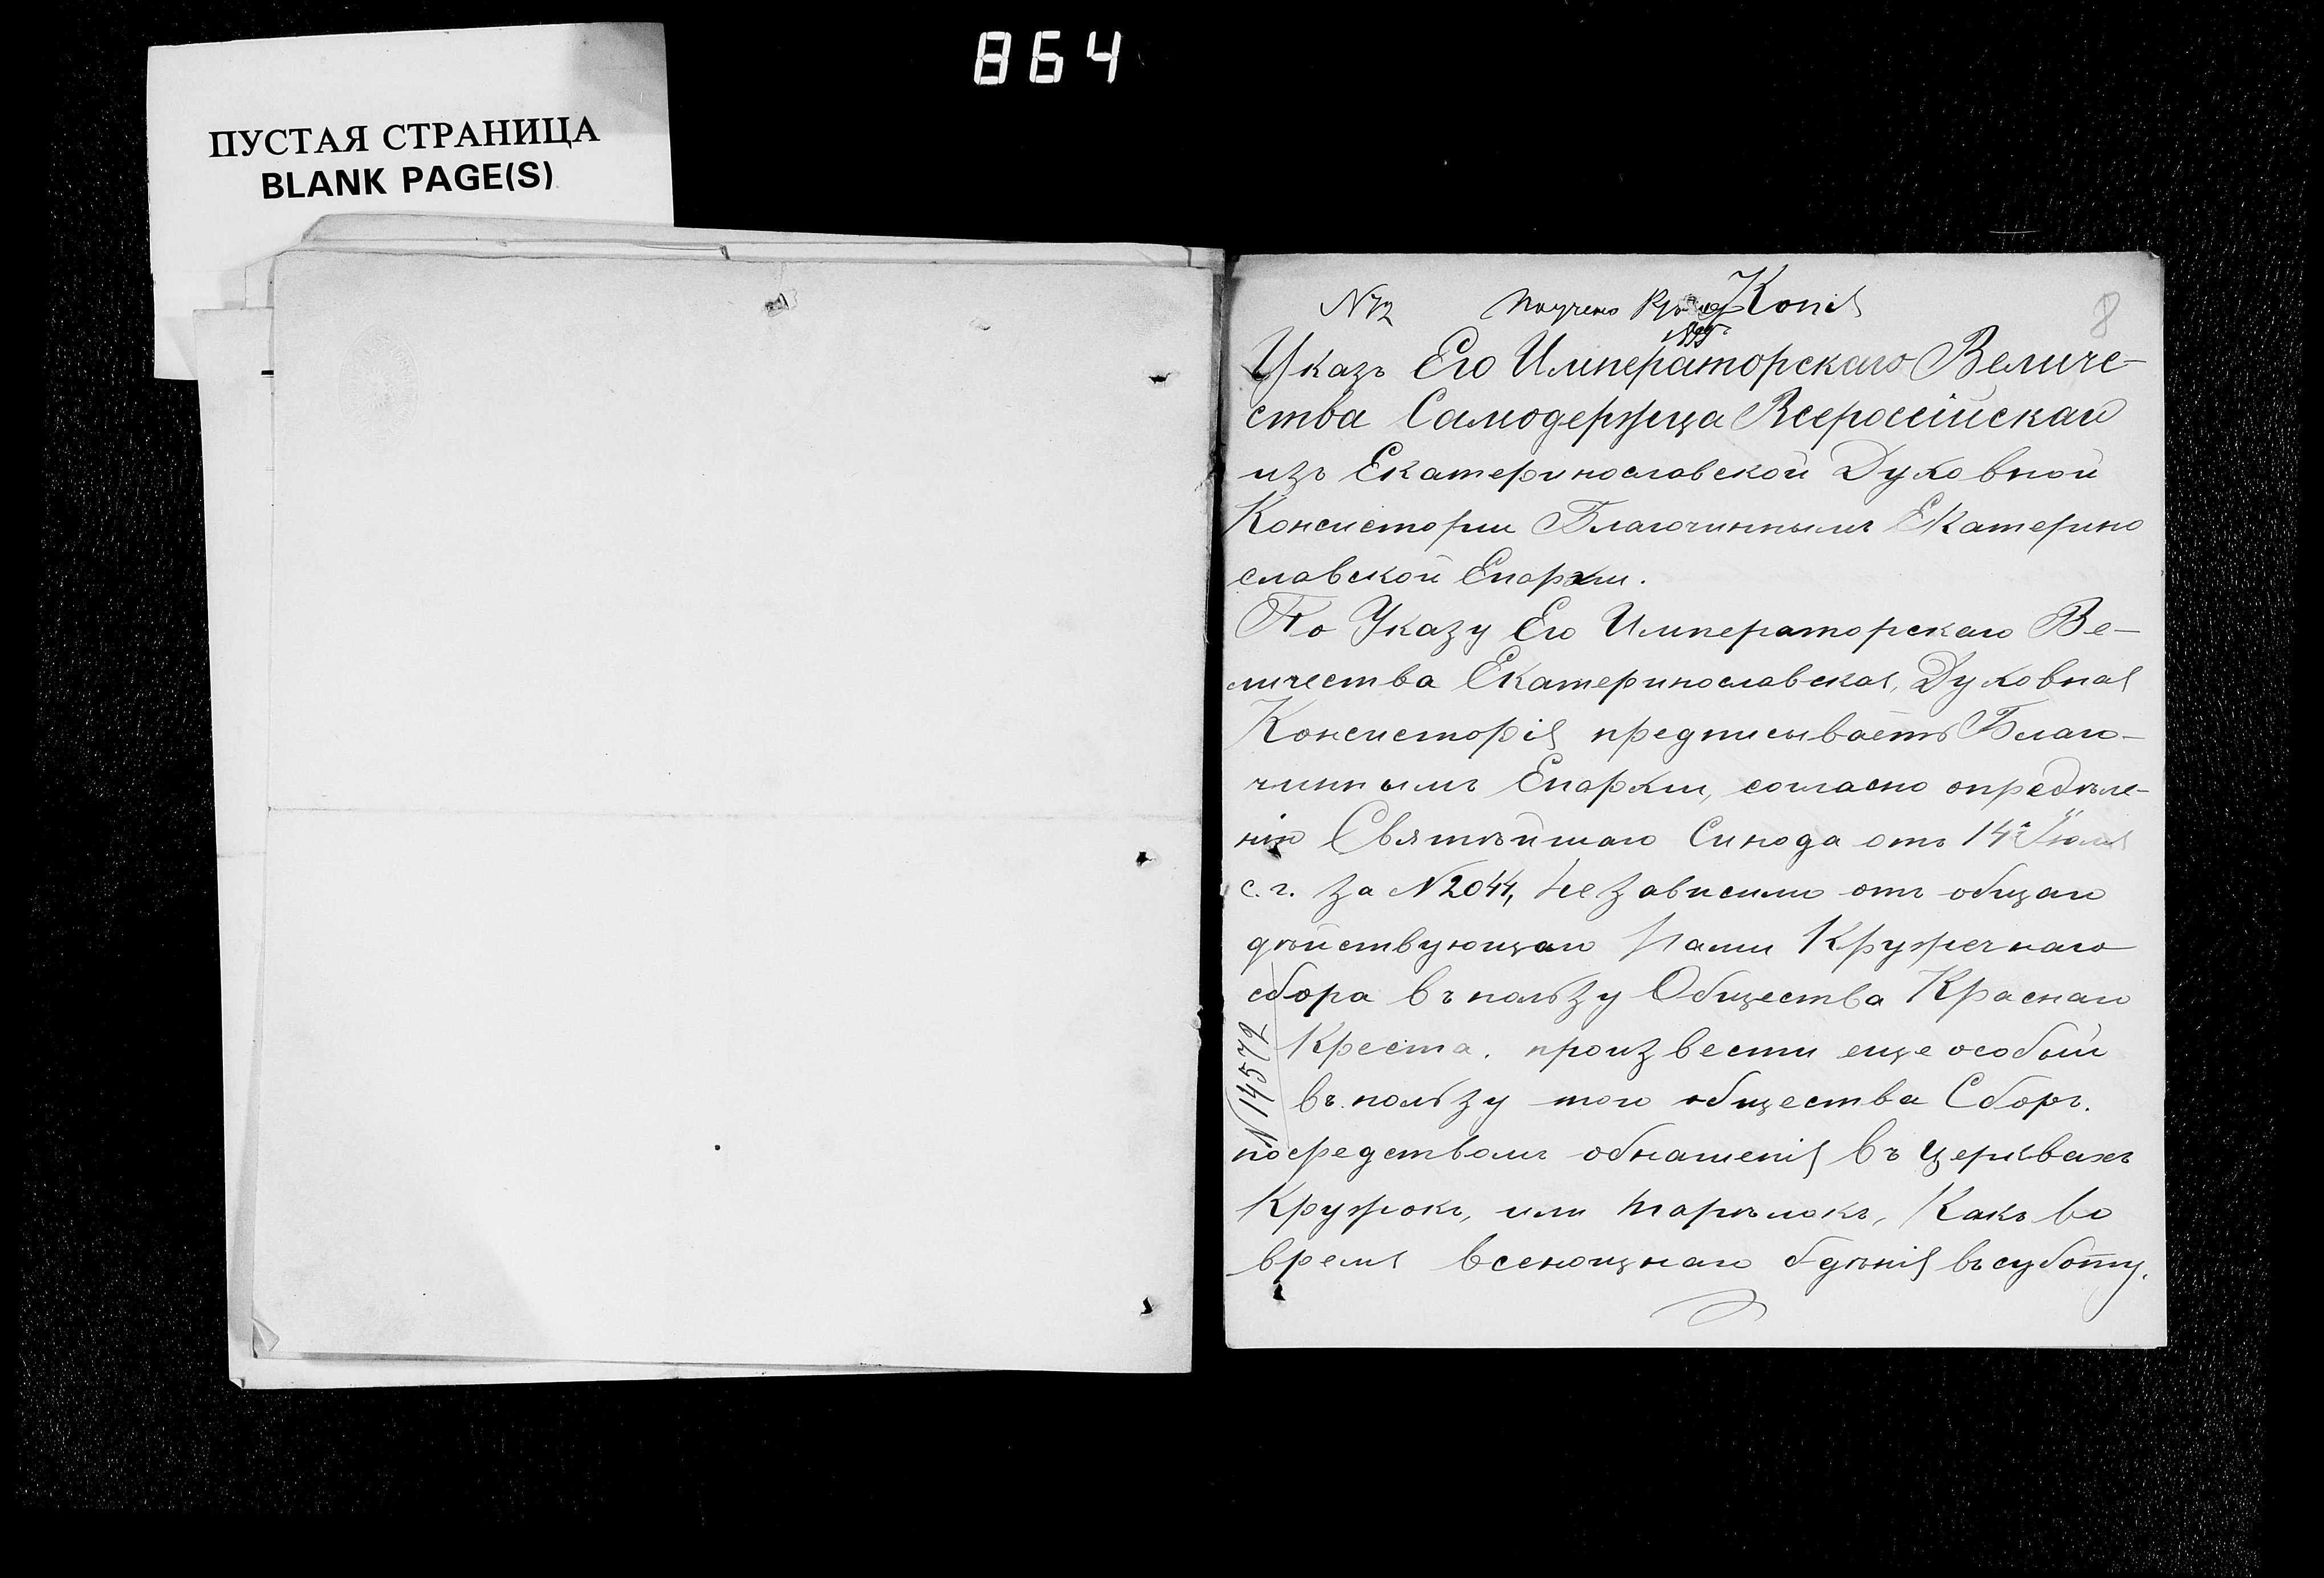 864
ПУСТАЯ СТРАНИЦА
BLANK PAGE(S)
8
Получено
Копія
Указъ Его Императорскаго Величе-
ства Самодержца Всероссійскаго
изъ Екатеринославской Духовной
Консисторіи Благочиннымъ Екатерино
славской Епархіи.
По Указу Его Императорскаго Ве-
личества Екатеринославская, Духовная
Консисторія предписываетъ Благо-
чиннымъ Епархіи, согласно опредѣле-
нію Святѣйшаго Синода отъ 14г Іюля
с.г. за №2044, независимо отъ общаго
дѣйствующаго Кружечнаго
сбора въ пользу Общества Краснаго
Креста. произвести еще особый
въ пользу того общества Сборъ.
посредствомъ обнашенія въ церквахъ
Кружокъ, или тарѣлокъ, Какъ во
время всенощнаго бдѣнія въ суботу.
№14572